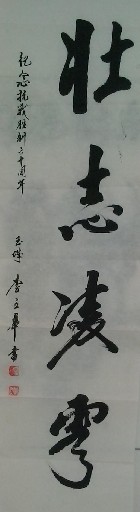 壮志凌雲
纪念抗战胜利六十周年
李文华书